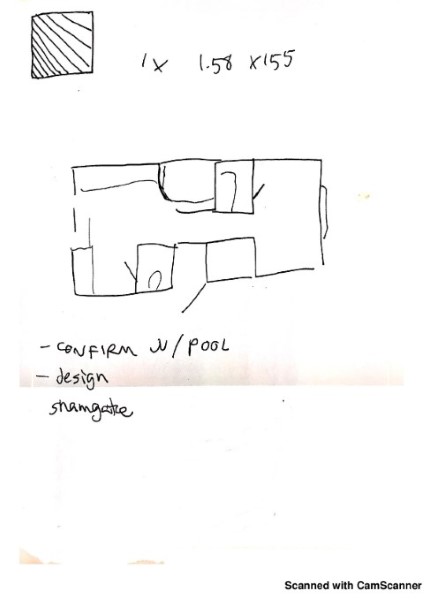 1x 1.58 x155
- CONFIRM W/ POOL
- design
Scanned with CamScanner